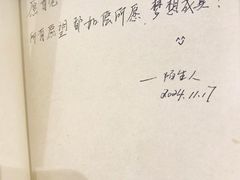 所有愿望 都如您所愿. 梦想成真!
— 陌生人
2024.11.17